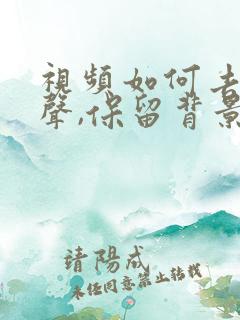 視頻如何去
聲,保留背景
靖陽成
未经同意禁止转载